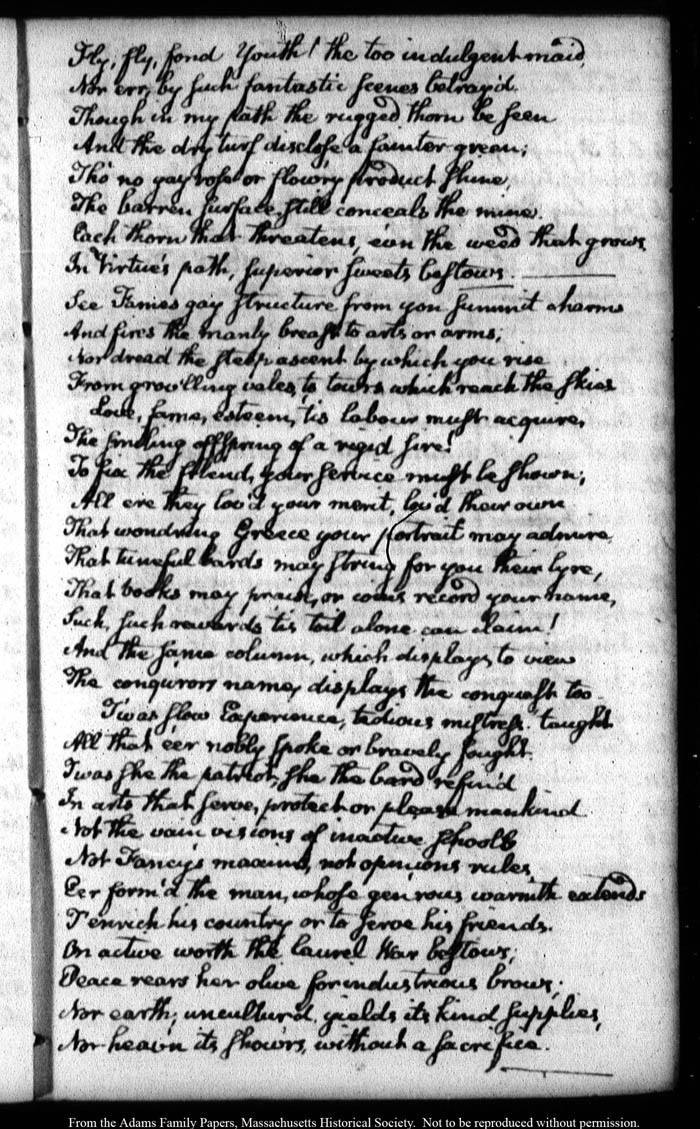 Fly, fly, fond Youth! the too indulgent maid,
Nor err, by such fantastic scenes betray'd.
Though in my path the rugged thorn be seen
And the dry turf disclose a fainter green;
Tho' no gay rose or flow'ry product shine,
The barren surface still conceals the mine.
Each thorn that threatens, e'en the weed that grows
In Virtue's path, superior sweets bestows.
See Fames gay structure from yon summit charms
And fires the manly breast to arts or arms;
Nor dread the steep ascent by which you rise
From grov'lling vales to tow'rs which reach the skies
Love, fame, esteem, tis labour must acquire,
The smiling offspring of a rigid sire!
To fix the friend, your service must be shown;
All ere they lov'd your merit, lov'd their own
That wondring Greece your portrait may admire
That tuneful bards may string for you their lyre,
That books may praise, or coins record your name,
Such, such rewards tis toil alone can claim!
And the same column, which displays to view
The conqurors name, displays the conquest too.
Twas slow Experience, tedious mistress taught
All that e'er nobly spoke or bravely fought.
Twas she the patriot, she the bard refin'd
In arts that serve, protect or please mankind
Not the vain visions of inactive schools
Not Fancy's maxims, not opinions rules,
Eer form'd the man, whose gen'rous warmth extends
T'enrich his country or to serve his friends.
On active worth the laurel War bestows;
Peace rears her olive for industrious brows;
Nor earth, uncultur'd, yields its kind supplies,
Nor heav'n its show'rs, without a sacrifice.
From the Adams Family Papers, Massachusetts Historical Society. Not to be reproduced without permission.